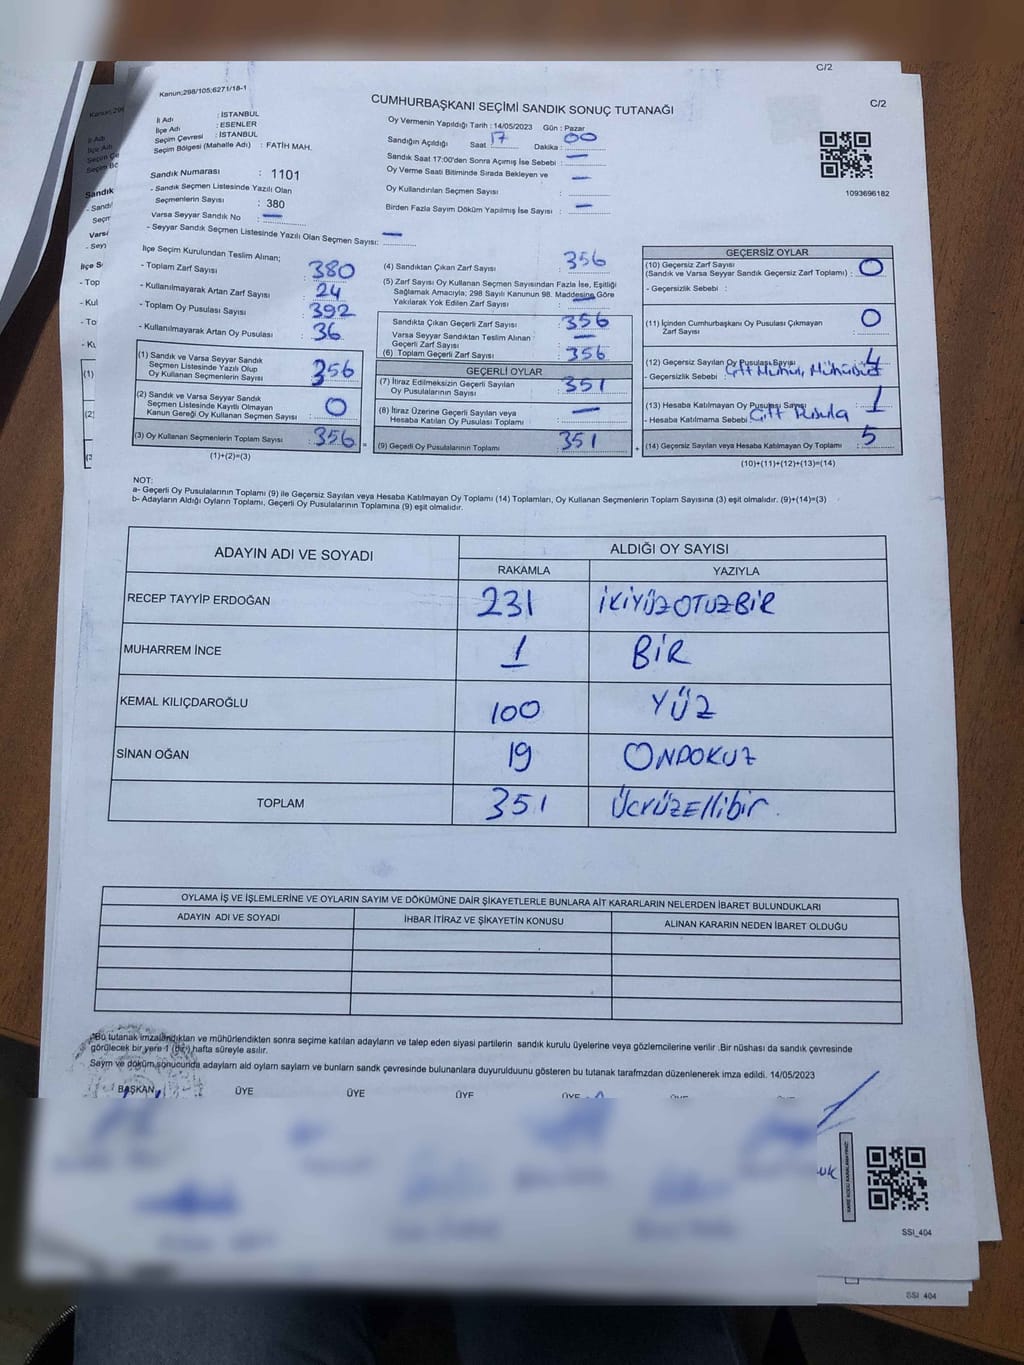 C/2
Kanun;298/105;6271/18-1
CUMHURBAŞKANI SEÇİMİ SANDIK SONUÇ TUTANAĞI
C/2
İl Adı : İSTANBUL
İlçe Adı : ESENLER
Seçim Çevresi : İSTANBUL
Seçim Bölgesi (Mahalle Adı) : FATİH MAH.
Oy Vermenin Yapıldığı Tarih : 14/05/2023 Gün : Pazar
Sandığın Açıldığı Saat : 17 Dakika : 00
Sandık Saat 17:00'den Sonra Açılmış İse Sebebi : —
Oy Verme Saati Bitiminde Sırada Bekleyen ve
Oy Kullandırılan Seçmen Sayısı : —
Birden Fazla Sayım Döküm Yapılmış İse Sayısı : —
1093696182
Sandık Numarası : 1101
- Sandık Seçmen Listesinde Yazılı Olan
Seçmenlerin Sayısı : 380
Varsa Seyyar Sandık No : —
- Seyyar Sandık Seçmen Listesinde Yazılı Olan Seçmen Sayısı: —
İlçe Seçim Kurulundan Teslim Alınan;
- Toplam Zarf Sayısı : 380
- Kullanılmayarak Artan Zarf Sayısı : 24
- Toplam Oy Pusulası Sayısı : 392
- Kullanılmayarak Artan Oy Pusulası : 36
(1) Sandık ve Varsa Seyyar Sandık
Seçmen Listesinde Yazılı Olup
Oy Kullanan Seçmenlerin Sayısı : 356
(2) Sandık ve Varsa Seyyar Sandık
Seçmen Listesinde Kayıtlı Olmayan
Kanun Gereği Oy Kullanan Seçmen Sayısı : 0
(3) Oy Kullanan Seçmenlerin Toplam Sayısı : 356 =
(1)+(2)=(3)
(4) Sandıktan Çıkan Zarf Sayısı : 356
(5) Zarf Sayısı Oy Kullanan Seçmen Sayısından Fazla İse, Eşitliği
Sağlamak Amacıyla; 298 Sayılı Kanunun 98. Maddesine Göre
Yakılarak Yok Edilen Zarf Sayısı : —
Sandıkta Çıkan Geçerli Zarf Sayısı : 356
Varsa Seyyar Sandıktan Teslim Alınan
Geçerli Zarf Sayısı : —
(6) Toplam Geçerli Zarf Sayısı : 356
GEÇERLİ OYLAR
(7) İtiraz Edilmeksizin Geçerli Sayılan
Oy Pusulalarının Sayısı : 351
(8) İtiraz Üzerine Geçerli Sayılan veya
Hesaba Katılan Oy Pusulası Toplamı : —
(9) Geçerli Oy Pusulalarının Toplamı : 351 +
GEÇERSİZ OYLAR
(10) Geçersiz Zarf Sayısı
(Sandık ve Varsa Seyyar Sandık Geçersiz Zarf Toplamı) : 0
- Geçersizlik Sebebi :
(11) İçinden Cumhurbaşkanı Oy Pusulası Çıkmayan
Zarf Sayısı : 0
(12) Geçersiz Sayılan Oy Pusulası Sayısı : 4
- Geçersizlik Sebebi : Çift Mühür, Mühürsüz
(13) Hesaba Katılmayan Oy Pusulası Sayısı : 1
- Hesaba Katılmama Sebebi : Çift Pusula
(14) Geçersiz Sayılan veya Hesaba Katılmayan Oy Toplamı : 5
(10)+(11)+(12)+(13)=(14)
NOT:
a- Geçerli Oy Pusulalarının Toplamı (9) ile Geçersiz Sayılan veya Hesaba Katılmayan Oy Toplamı (14) Toplamları, Oy Kullanan Seçmenlerin Toplam Sayısına (3) eşit olmalıdır. (9)+(14)=(3)
b- Adayların Aldığı Oyların Toplamı, Geçerli Oy Pusulalarının Toplamına (9) eşit olmalıdır.
ADAYIN ADI VE SOYADI ALDIĞI OY SAYISI
RAKAMLA YAZIYLA
RECEP TAYYİP ERDOĞAN 231 İKİYÜZOTUZBİR
MUHARREM İNCE 1 BİR
KEMAL KILIÇDAROĞLU 100 YÜZ
SİNAN OĞAN 19 ONDOKUZ
TOPLAM 351 ÜCYÜZEllibir.
OYLAMA İŞ VE İŞLEMLERİNE VE OYLARIN SAYIM VE DÖKÜMÜNE DAİR ŞİKAYETLERLE BUNLARA AİT KARARLARIN NELERDEN İBARET BULUNDUKLARI
ADAYIN ADI VE SOYADI İHBAR İTİRAZ VE ŞİKAYETİN KONUSU ALINAN KARARIN NEDEN İBARET OLDUĞU
*Bu tutanak imzalandıktan ve mühürlendikten sonra seçime katılan adayların ve talep eden siyasi partilerin sandık kurulu üyelerine veya gözlemcilerine verilir .Bir nüshası da sandık çevresinde
görülecek bir yere 1 (bir) hafta süreyle asılır.
Sayım ve döküm sonucunda adayların ald oyların sayların ve bunların sandk çevresinde bulunanlara duyurulduunu gösteren bu tutanak tarafmzdan düzenlenerek imza edildi. 14/05/2023
BAŞKAN ÜYE ÜYE ÜYE ÜYE
SSI_404
SSI_404